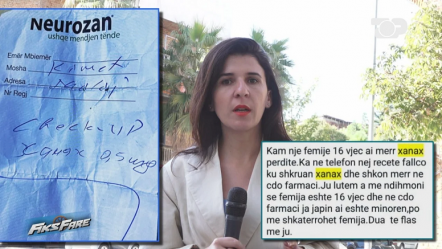 Neurozan®
ushqe mendjen tënde
Emër Mbiemër
Mosha
Adresa
Nr Regj
CHECK-UP
Xanax 0,5 mg
FiksFare
TOP
Kam nje femije 16 vjec ai merr xanax
perdite.Ka ne telefon nej recete fallco
ku shkruan xanax dhe shkon merr ne
cdo farmaci.Ju lutem a me ndihmoni
se femija eshte 16 vjec dhe ne cdo
farmaci ja japin ai eshte minoren,po
me shkaterrohet femija.Dua te flas
me ju.